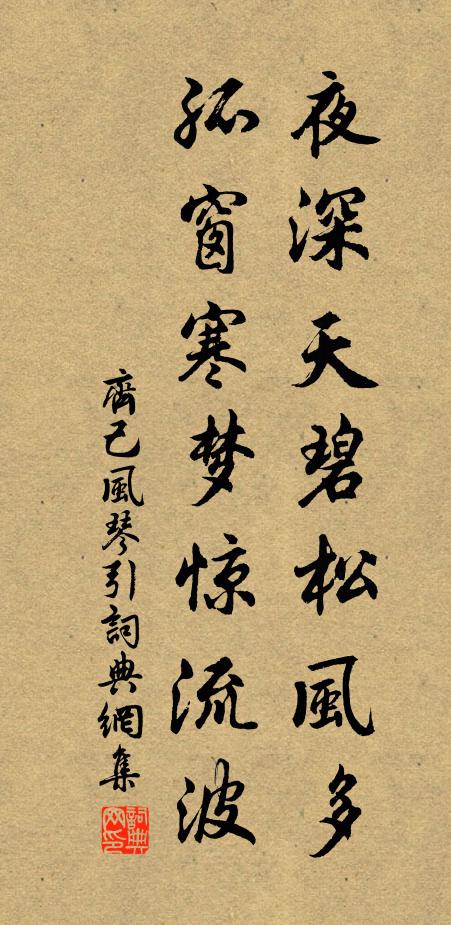 夜深天碧松風多
孤窗寒梦惊流波
齊己風琴引詞典網集
詞典网印